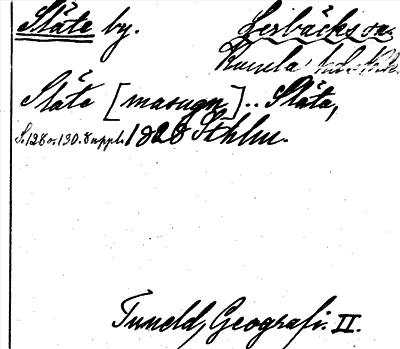 Släte by. Lerbäcks sn.
Kumla
Släte [masugn].. Släta,
S. 128 o. 130. 8 uppl. 1828 Sthlm.
Tuneld, Geografi. II.